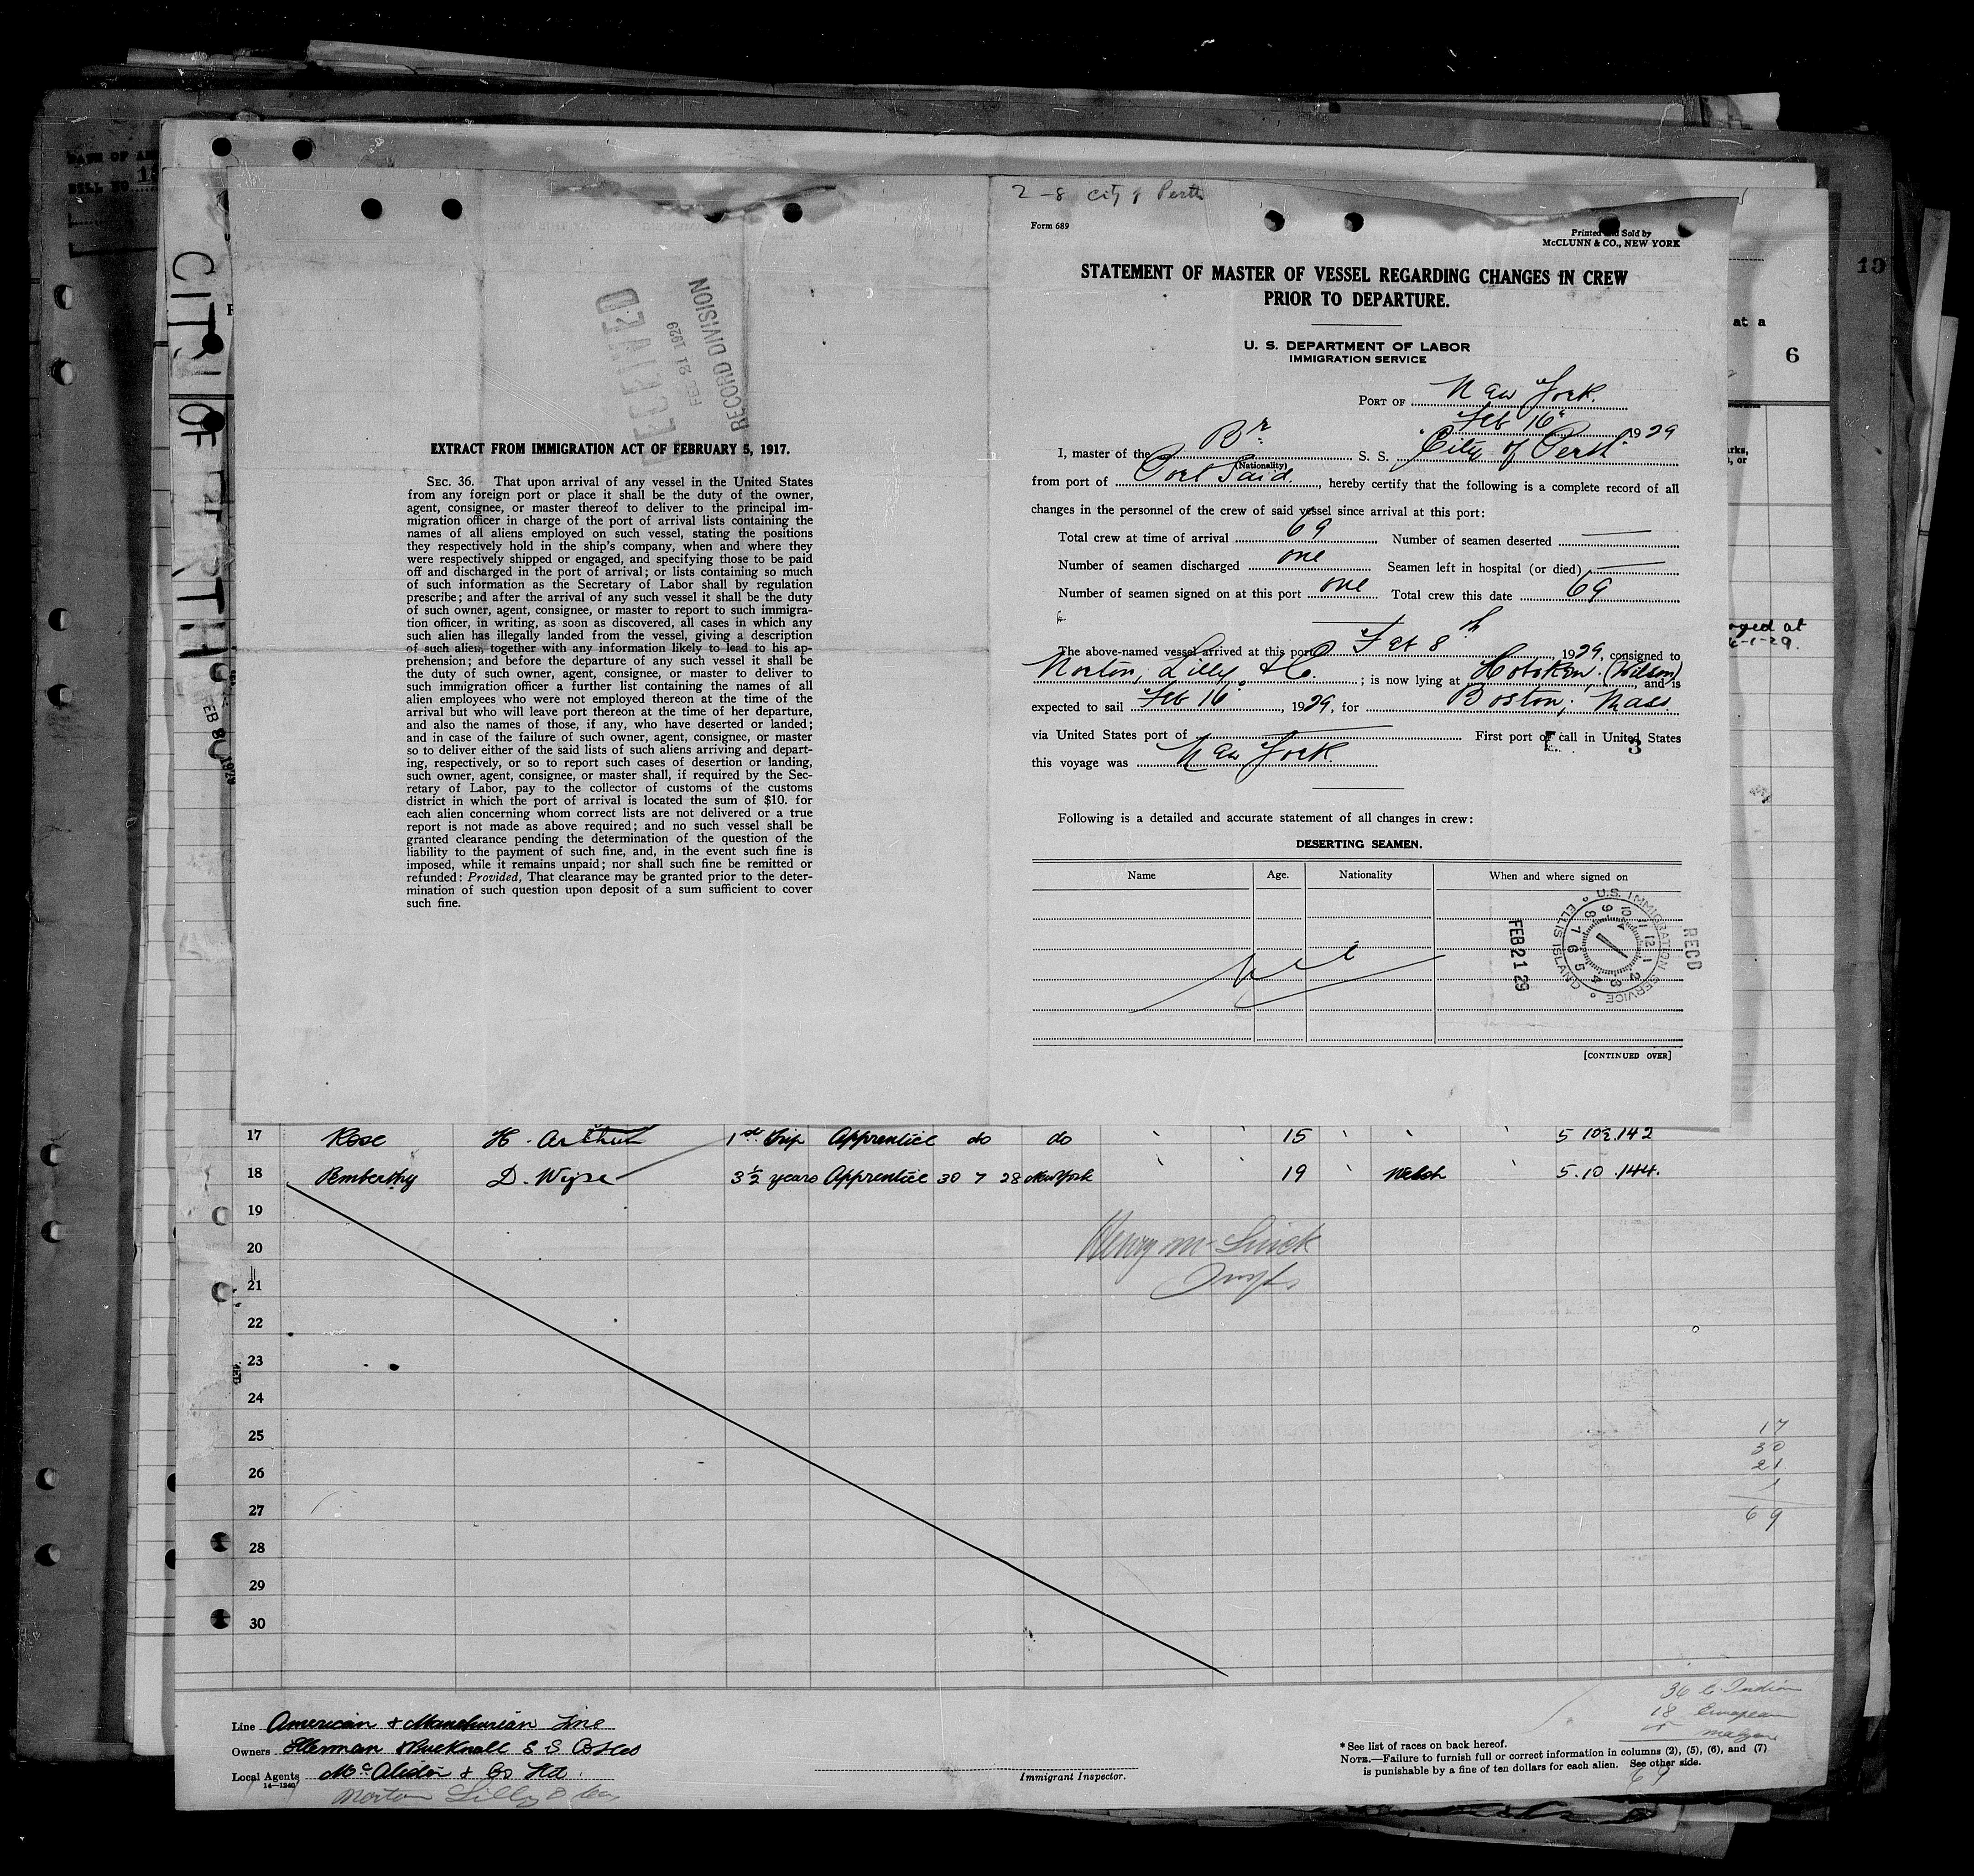 2-8 City of Perth
Form 689
Printed and Sold by
McCLUNN & CO., NEW YORK
STATEMENT OF MASTER OF VESSEL REGARDING CHANGES IN CREW
PRIOR TO DEPARTURE.
U. S. DEPARTMENT OF LABOR
IMMIGRATION SERVICE
PORT OF New York.
Feb 16 1929
I, master of the Br S. S. City of Perth
(Nationality)
from port of Port Said, hereby certify that the following is a complete record of all
changes in the personnel of the crew of said vessel since arrival at this port:
Total crew at time of arrival 69 Number of seamen deserted —
Number of seamen discharged one Seamen left in hospital (or died) —
Number of seamen signed on at this port one Total crew this date 69
The above-named vessel arrived at this port Feb 8th 1929, consigned to
Norton, Lilly & Co. ; is now lying at Hoboken. (Wilson) and is
expected to sail Feb 16, 1929, for Boston, Mass.
via United States port of — First port of call in United States
this voyage was New York.
3
Following is a detailed and accurate statement of all changes in crew:
DESERTING SEAMEN.
Name Age. Nationality When and where signed on
RECD
FEB 21 29
U.S. IMMIGRATION SERVICE
ELLIS ISLAND
[CONTINUED OVER]
RECEIVED
FEB 21 1929
RECORD DIVISION
EXTRACT FROM IMMIGRATION ACT OF FEBRUARY 5, 1917.
SEC. 36. That upon arrival of any vessel in the United States
from any foreign port or place it shall be the duty of the owner,
agent, consignee, or master thereof to deliver to the principal im-
migration officer in charge of the port of arrival lists containing the
names of all aliens employed on such vessel, stating the positions
they respectively hold in the ship's company, when and where they
were respectively shipped or engaged, and specifying those to be paid
off and discharged in the port of arrival; or lists containing so much
of such information as the Secretary of Labor shall by regulation
prescribe; and after the arrival of any such vessel it shall be the duty
of such owner, agent, consignee, or master to report to such immigra-
tion officer, in writing, as soon as discovered, all cases in which any
such alien has illegally landed from the vessel, giving a description
of such alien, together with any information likely to lead to his ap-
prehension; and before the departure of any such vessel it shall be
the duty of such owner, agent, consignee, or master to deliver to
such immigration officer a further list containing the names of all
alien employees who were not employed thereon at the time of the
arrival but who will leave port thereon at the time of her departure,
and also the names of those, if any, who have deserted or landed;
and in case of the failure of such owner, agent, consignee, or master
so to deliver either of the said lists of such aliens arriving and depart-
ing, respectively, or so to report such cases of desertion or landing,
such owner, agent, consignee, or master shall, if required by the Sec-
retary of Labor, pay to the collector of customs of the customs
district in which the port of arrival is located the sum of $10. for
each alien concerning whom correct lists are not delivered or a true
report is not made as above required; and no such vessel shall be
granted clearance pending the determination of the question of the
liability to the payment of such fine, and, in the event such fine is
imposed, while it remains unpaid; nor shall such fine be remitted or
refunded: Provided, That clearance may be granted prior to the deter-
mination of such question upon deposit of a sum sufficient to cover
such fine.
CITY OF PERTH
FEB 8 1929
10
at a
6
17 Rose H. Arthur 1st Trip Apprentice do do 15 5 10½ 142
18 Pemberthy D. Wyse 3½ years Apprentice 30 7 28 New York 19 Welsh 5.10 144.
19
20
21
22
23
24
25
26
27
28
29
30
17
30
21
1
69
36 E. Indian
18 European
Line American & Manchurian Line
Owners Ellerman & Bucknall S S Co Ltd
Local Agents
14—1240
Norton Lilly & Co
Immigrant Inspector.
* See list of races on back hereof.
NOTE.—Failure to furnish full or correct information in columns (2), (5), (6), and (7)
is punishable by a fine of ten dollars for each alien. See other side.
69